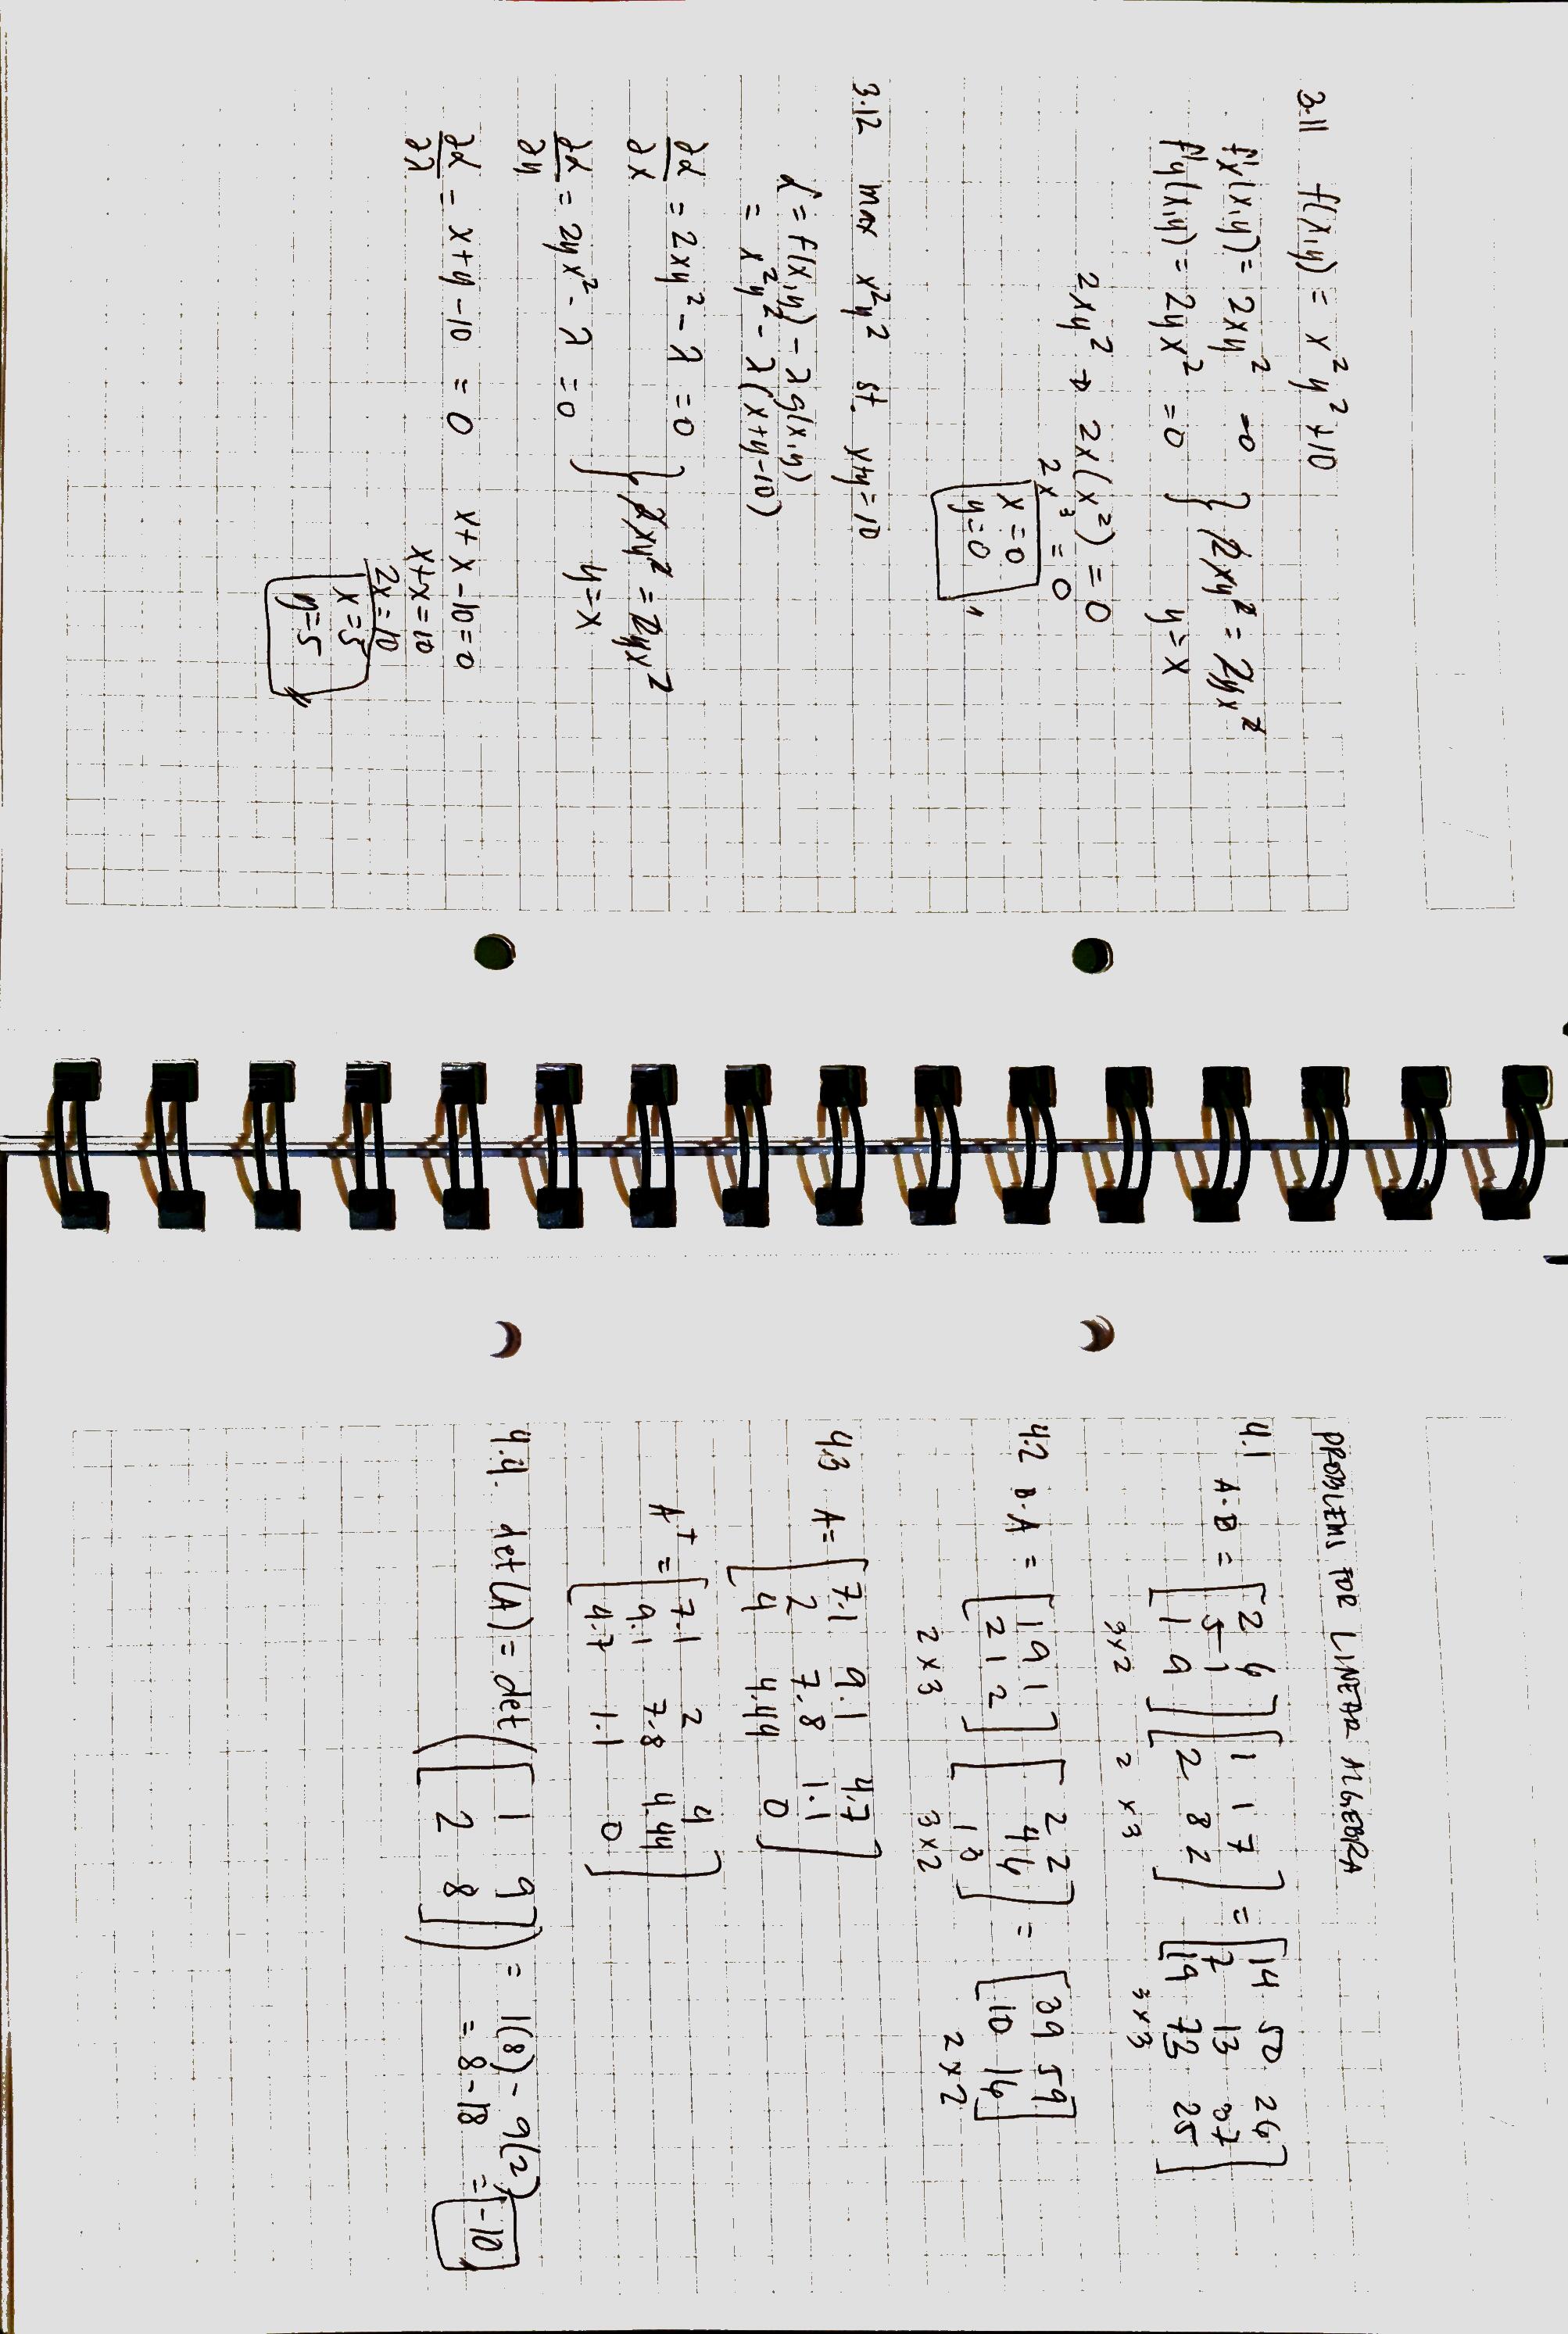 3.11 f(x,y) = x²y² + 10
f'x(x,y) = 2xy² = 0 } 2xy² = 2yx²
f'y(x,y) = 2yx² = 0 y = x
2xy² → 2x(x²) = 0
2x³ = 0
x = 0
y = 0
3.12 max x²y² st. x+y = 10
L = f(x,y) - λg(x,y)
= x²y² - λ(x+y-10)
∂L/∂x = 2xy² - λ = 0 } 2xy² = 2yx²
∂L/∂y = 2yx² - λ = 0 y = x
∂L/∂λ = x+y-10 = 0 x+x-10 = 0
x+x = 10
2x = 10
x = 5
y = 5
PROBLEMS FOR LINEAR ALGEBRA
4.1
A·B = [2 6 [1 1 7 = [14 50 26
5 1 2 8 2] 7 13 37
1 9] 19 73 25]
3x2 2 x3 3x3
4.2 B·A = [1 9 1 [2 2 = [39 59
2 1 2] 4 6 10 16]
1 3]
2x3 3x2 2x2
4.3 A = [7.1 9.1 4.7
2 7.8 1.1
4 4.44 0]
Aᵀ = [7.1 2 4
9.1 7.8 4.44
4.7 1.1 0]
4.4. det(A) = det([1 9 = 1(8) - 9(2)
2 8]) = 8 - 18 = -10